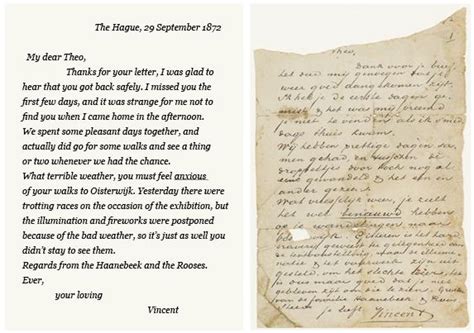 The Hague, 29 September 1872
My dear Theo,
Thanks for your letter, I was glad to
hear that you got back safely. I missed you the
first few days, and it was strange for me not to
find you when I came home in the afternoon.
We spent some pleasant days together, and
actually did go for some walks and see a thing
or two whenever we had the chance.
What terrible weather, you must feel anxious
of your walks to Oisterwijk. Yesterday there were
trotting races on the occasion of the exhibition, but
the illumination and fireworks were postponed
because of the bad weather, so it's just as well you
didn't stay to see them.
Regards from the Haanebeek and the Rooses.
Ever,
your loving
Vincent
Theo,
Dank voor je brief
het deed mij genoegen dat je
weer goed aangekomen zijt.
Ik heb je de eerste dagen ge
mist & het was mij vreemd
je niet te vinden als ik
dags thuis kwam.
Wij hebben prettige dagen sa
men gehad, en tusschen de
droppeltjes door toch nog al
eens gewandeld & het een en
ander gezien.
Wat vreselijk weer, je zult
het wel benauwd hebben
op je wandelingen naar
geweest ter gelegenheid
van de tentoonstelling, maar de illumi
natie & het vuurwerk zijn uit
gesteld, om het slechte weer,
dus maar goed dat je niet
gebleven zijt om die te zien.
van de familie Haanebeek &
je liefh
Vincent